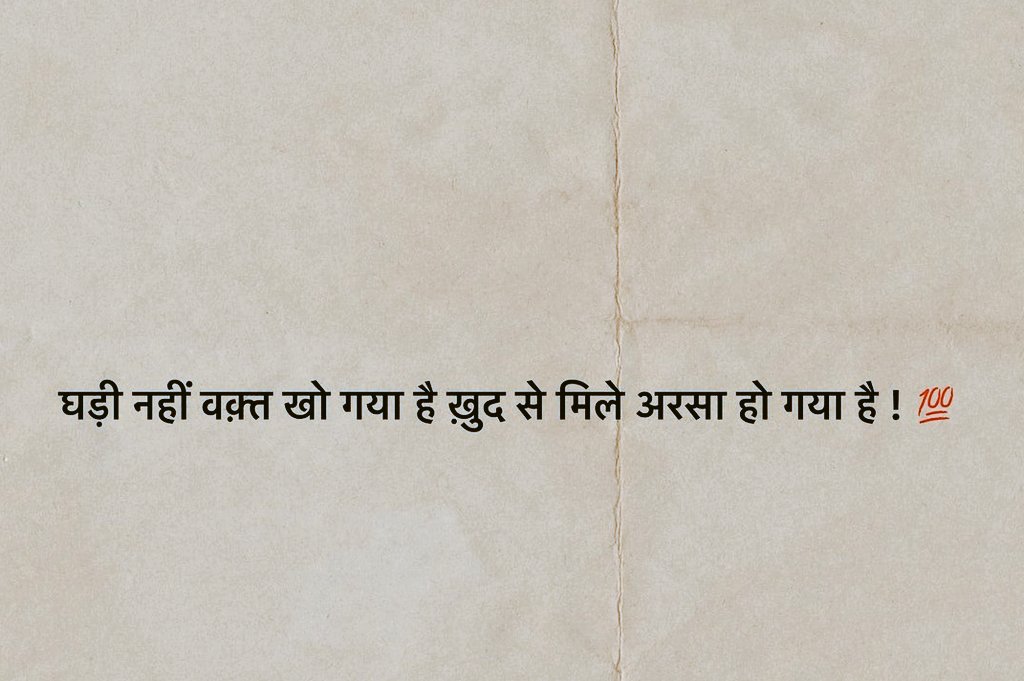 घड़ी नहीं वक़्त खो गया है ख़ुद से मिले अरसा हो गया है ! 💯